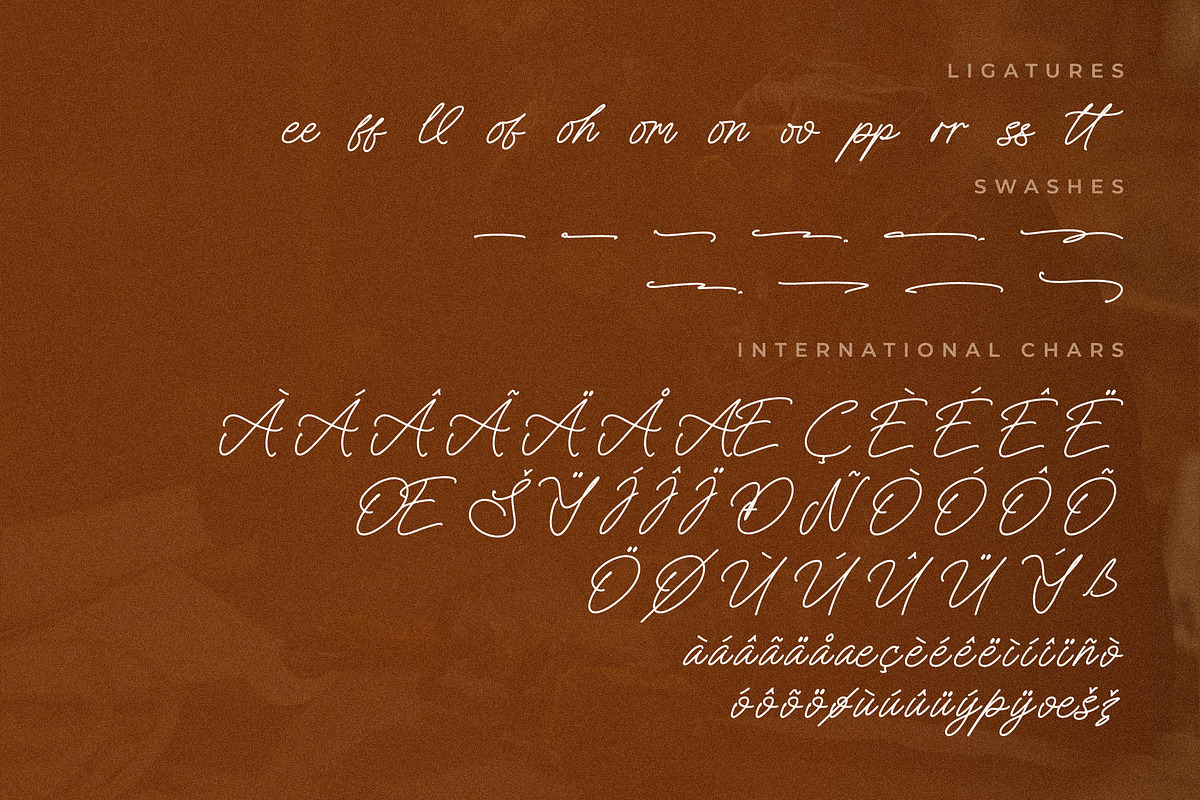 LIGATURES
ee ff ll of oh om on ov pp rr ss tt
SWASHES
INTERNATIONAL CHARS
À Á Â Ã Ä Å Æ Ç È É Ê Ë
Œ Š Ÿ Í Î Ï Ð Ñ Ò Ó Ô Õ
Ö Ø Ù Ú Û Ü Ý ß
àáâãäåæçèéêëìíîïñò
óôõöøùúûüýþÿœšž